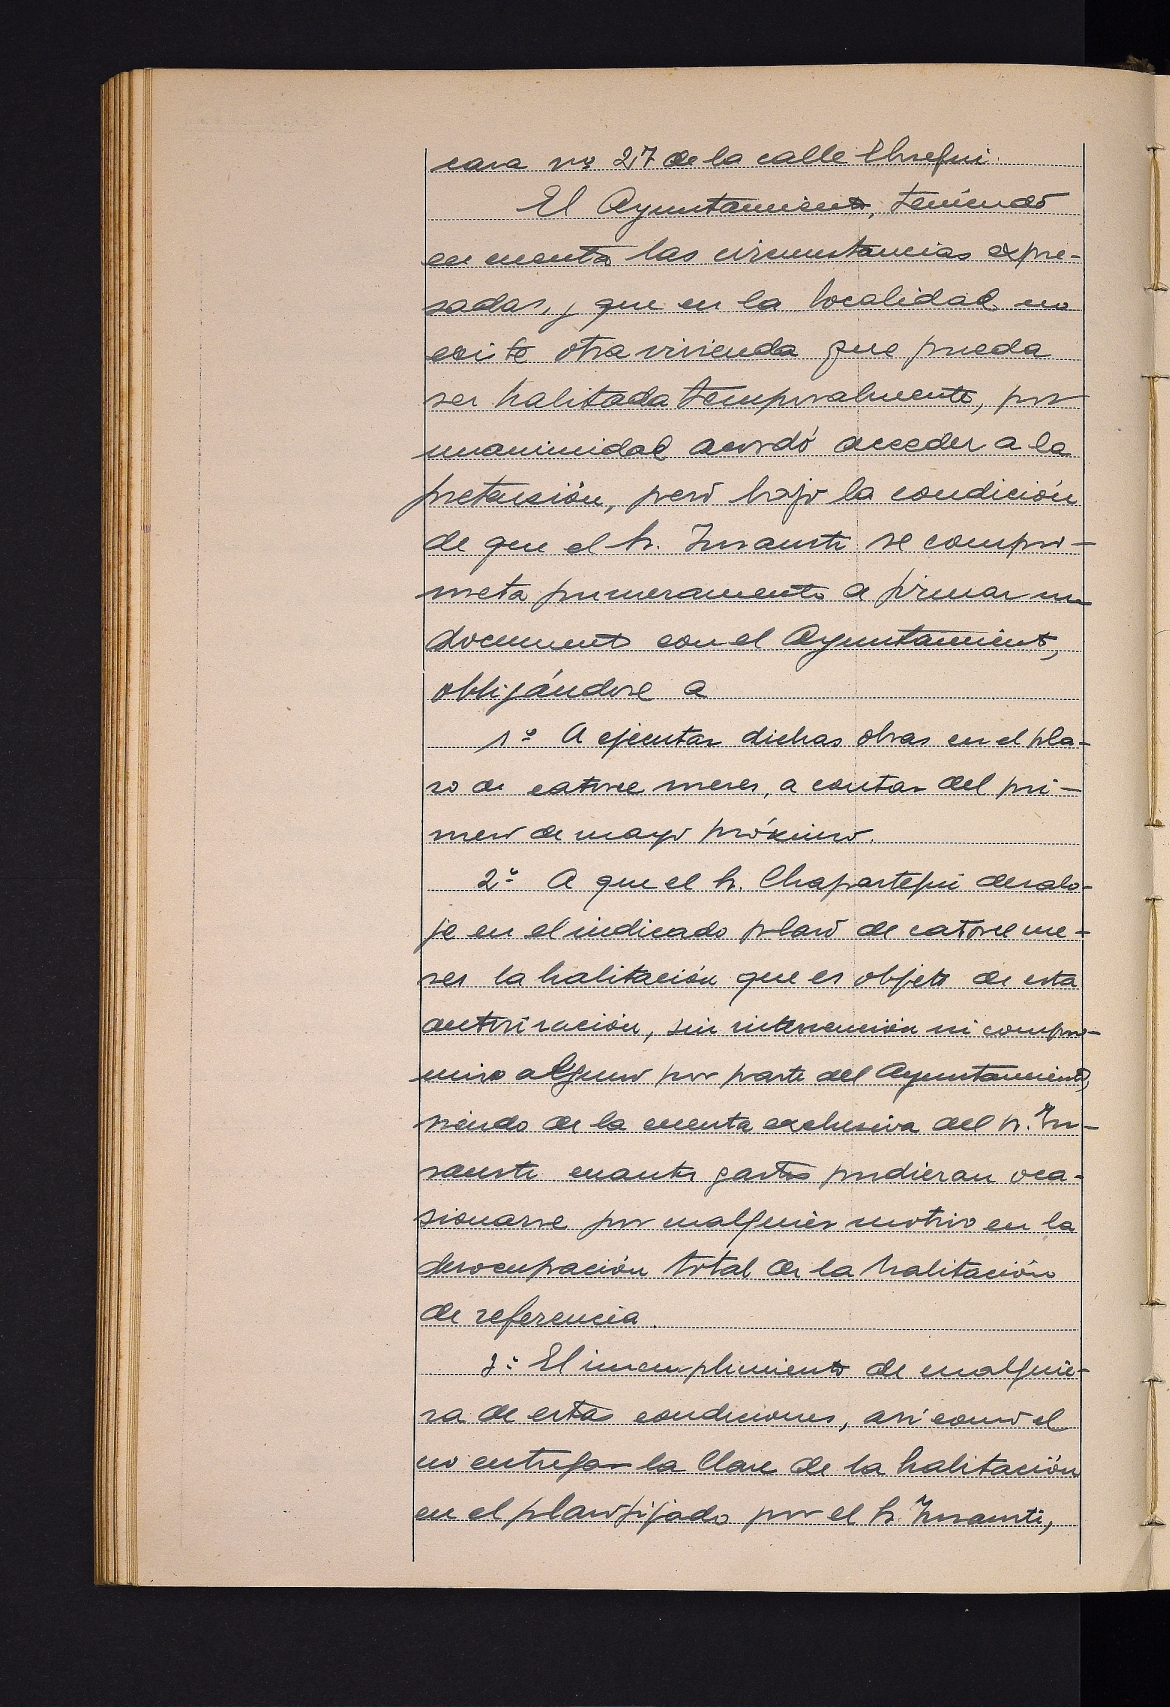 casa nº 27 de la calle Obregui.
El Ayuntamiento, teniendo
en cuenta las circunstancias expre-
sadas, y que en la localidad no
existe otra vivienda que pueda
ser habitada temporalmente, por
unanimidad acordó acceder a la
pretensión, pero bajo la condición
de que el Sr. Insausti se compro-
meta primeramente a firmar un
documento con el Ayuntamiento,
obligándose a
1º A ejecutar dichas obras en el pla-
zo de catorce meses, a contar del pri-
mero de mayo próximo.
2º A que el Sr. Chapartegui desalo-
je en el indicado plazo de catorce me-
ses la habitación que es objeto de esta
autorización, sin intervención ni compro-
miso alguno por parte del Ayuntamiento,
siendo de la cuenta exclusiva del Sr. In-
sausti cuantos gastos pudieran oca-
sionarse por cualquier motivo en la
desocupación total de la habitación
de referencia.
3º El incumplimiento de cualquie-
ra de estas condiciones, así como el
no entregar la llave de la habitación
en el plazo fijado por el Sr. Insausti,